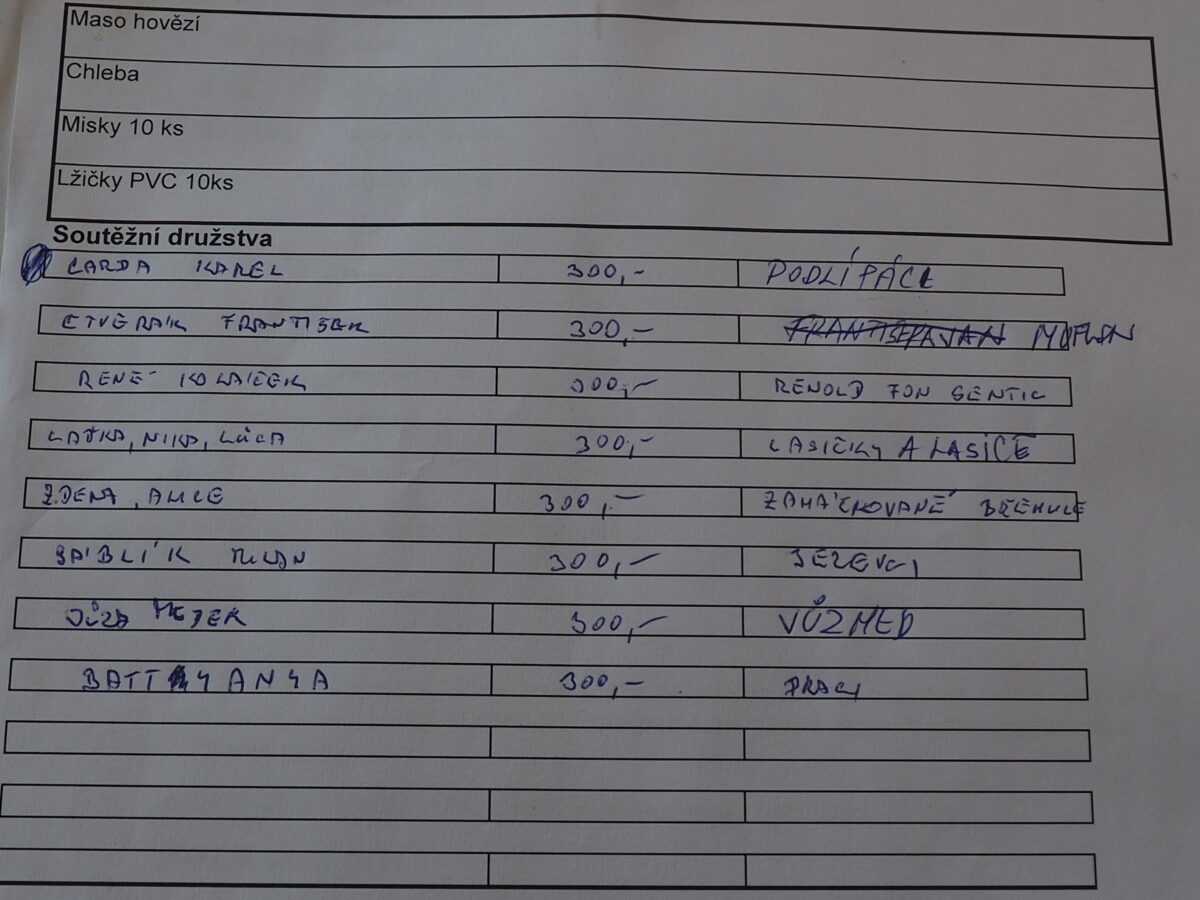 Maso hovězí
Chleba
Misky 10 ks
Lžičky PVC 10ks
Soutěžní družstva
CARDA KAREL 300,- PODLÍPÁCI
CTVERAK FRANTISEK 300,- MUFLON
RENÉ KOLAICEK 300,- RENOLD FON SENTIC
LAŤKA, NIKA, LŮCA 300,- LASIČKY A LASIČE
ZDENA, ALICE 300,- ZAHÁČKOVANÉ BŘEHULE
BÁBLÍK MILAN 300,- JEZEVCI
JŮZA 300,- VŮZMED
BATTYANYA 300,- PRACI